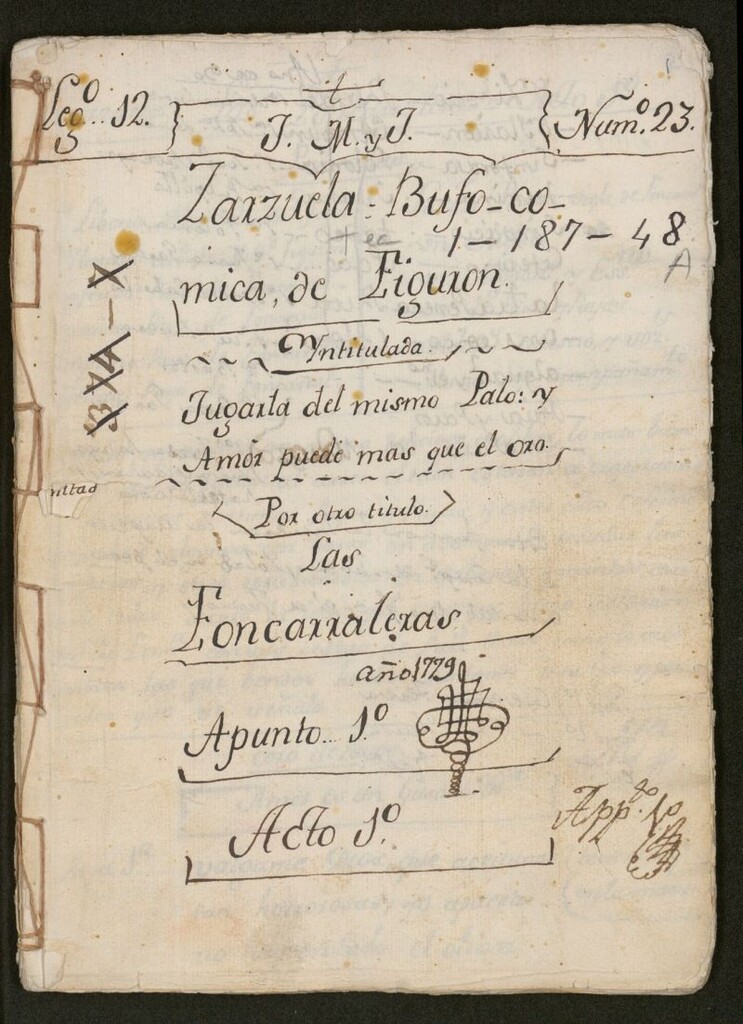 †
Leg.º 12.
J. M. y J.
Num.º 23.
Zarzuela-Bufo-co-
Tea 1-187-48
A
mica, de Figuron.
Yntitulada.
Jugarla del mismo Palo: y
Amor puede mas que el oro.
Por otro titulo.
Las
Foncarraleras
año 1729
Apunto 1.º
App.do 1º
Acto 1.º